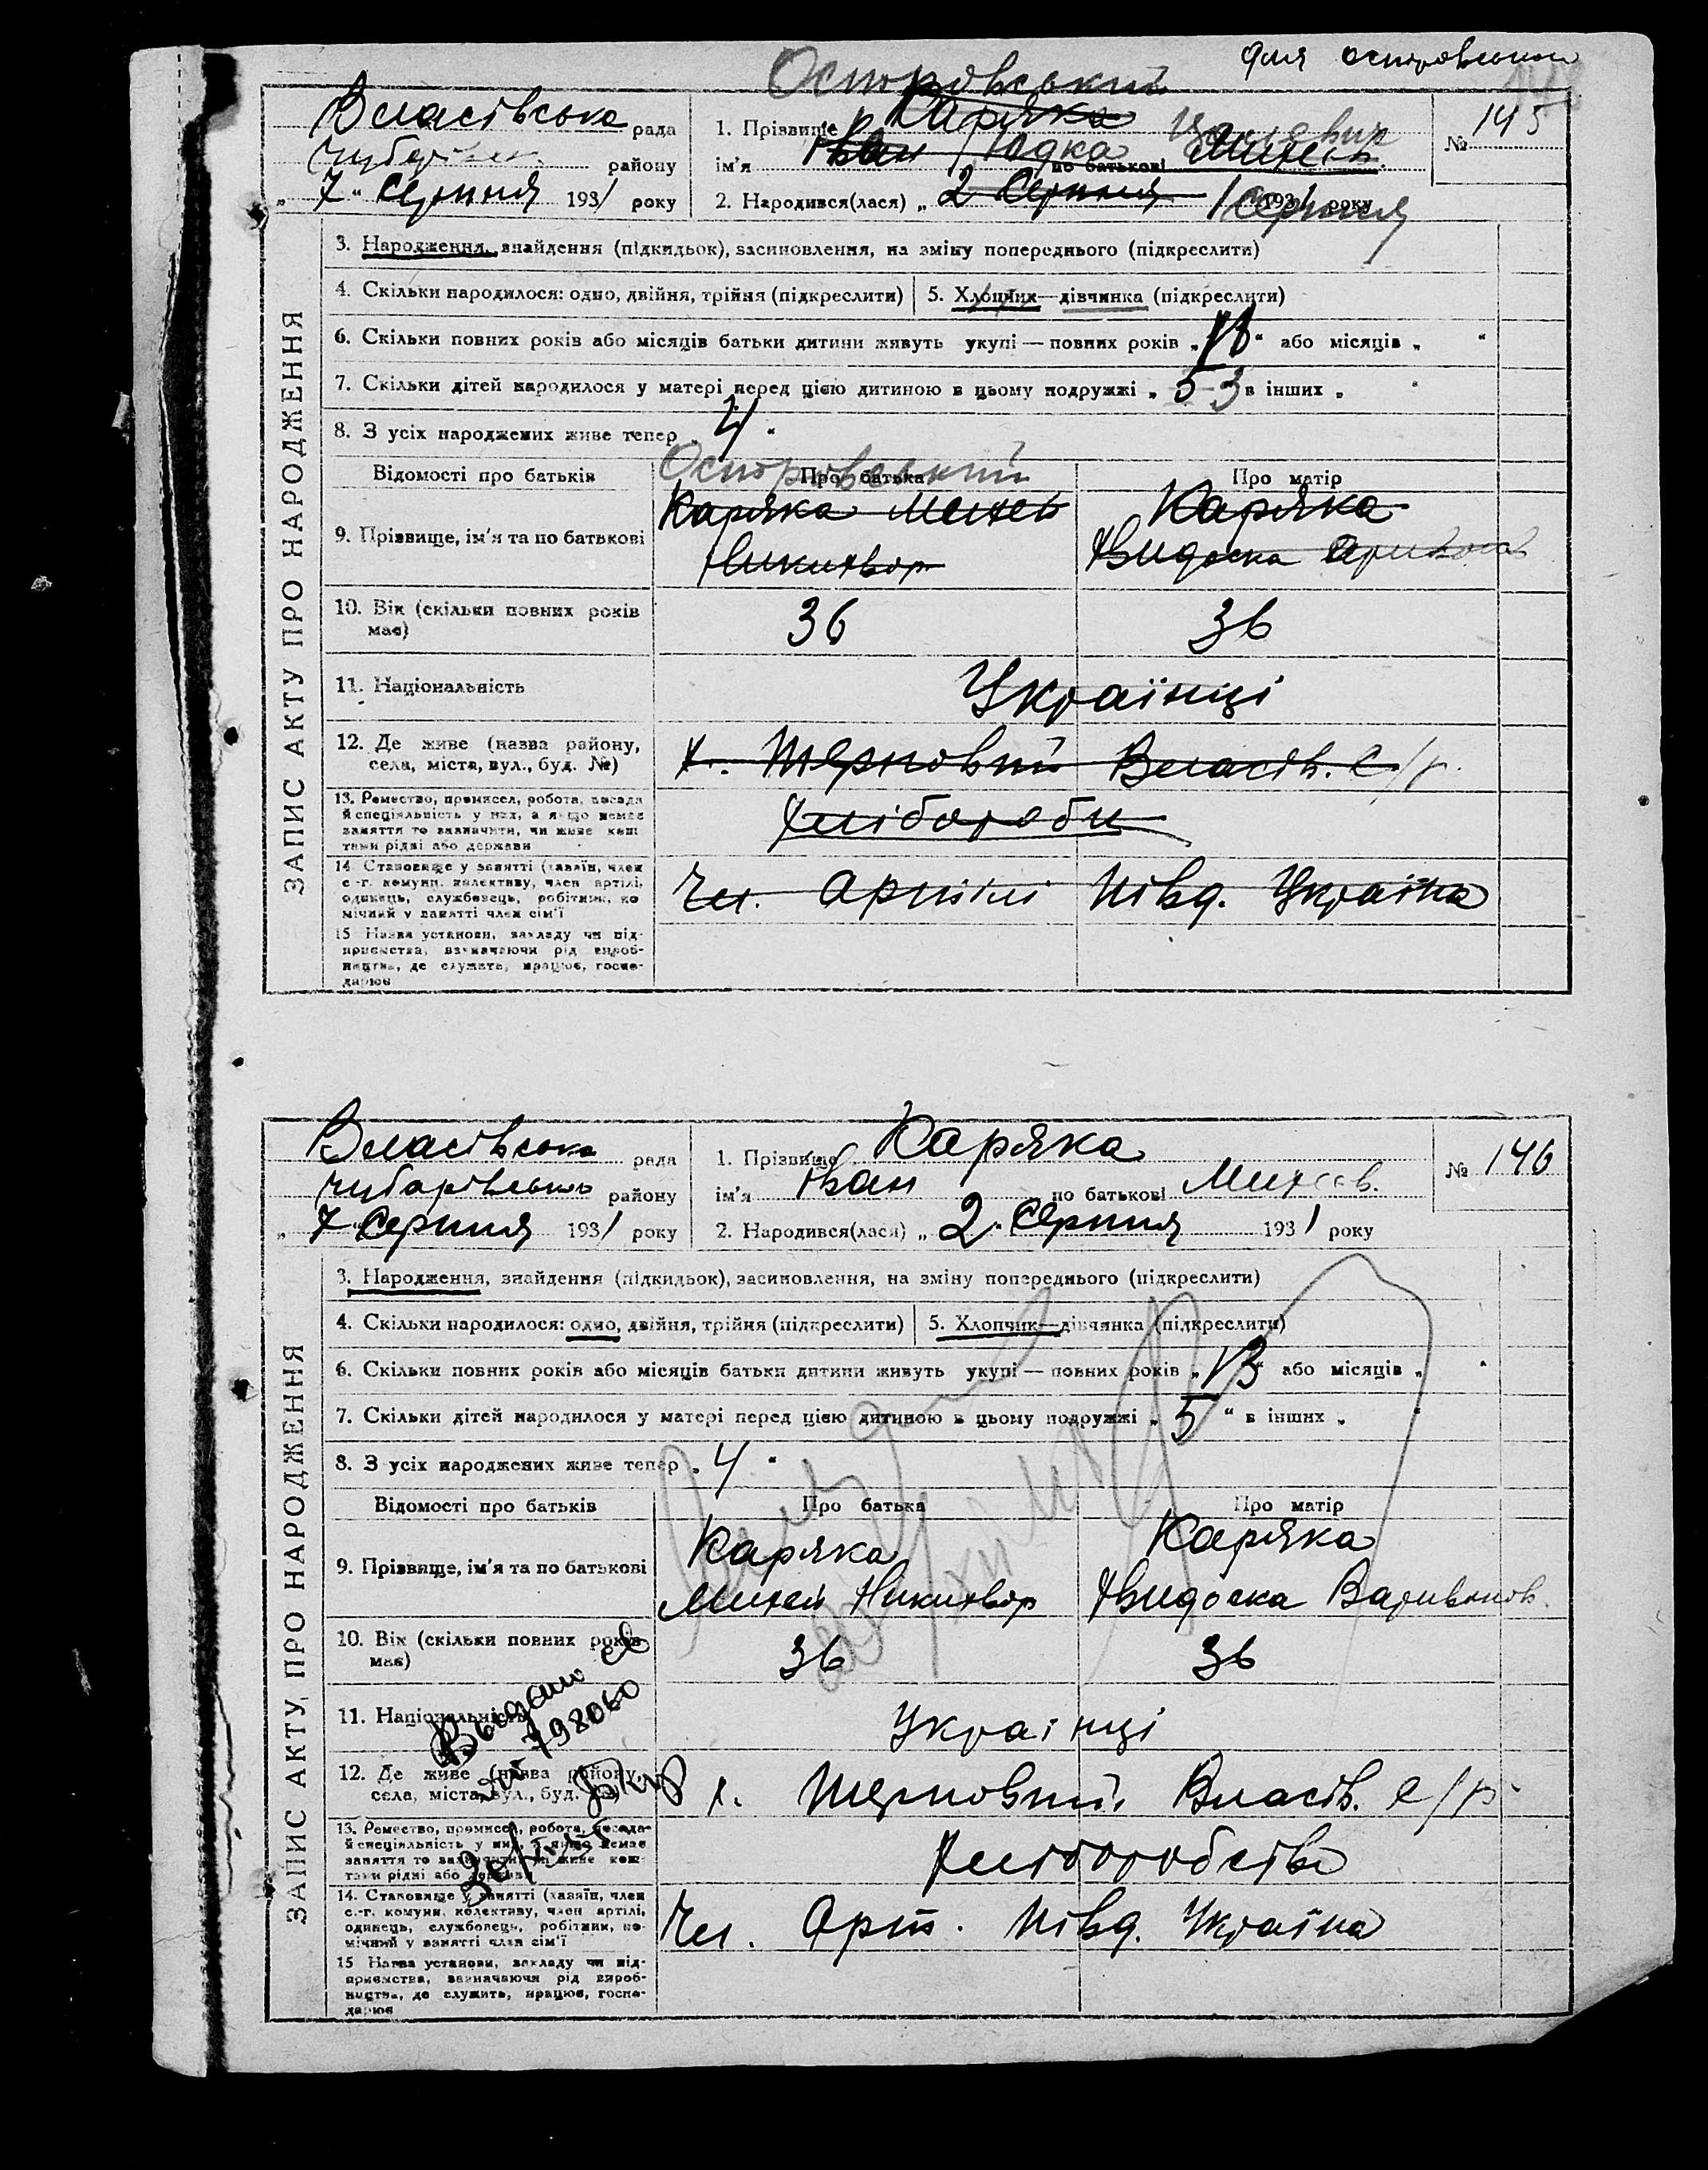 для островськой
Островський
Власівська рада
1. Прізвище Каряка
№ 145
району
ім'я Іван Юдка по батькові Михеєв.
„ 7 " Серпня 1931 року
2. Народився(лася) „ 2 Серпня 1931 року 1 Серпня
ЗАПИС АКТУ ПРО НАРОДЖЕННЯ
3. Народження, знайдення (підкидьок), засиновлення, на зміну попереднього (підкреслити)
4. Скільки народилося: одно, двійня, трійня (підкреслити)
5. Хлопчик—дівчинка (підкреслити)
6. Скільки повних років або місяців батьки дитини живуть укупі — повних років „ " або місяців „ "
7. Скільки дітей народилося у матері перед цією дитиною в цьому подружжі „ 5 3 в інших „ "
8. З усіх народжених живе тепер „ 4 "
Островський
Відомості про батьків
Про батька
Про матір
9. Прізвище, ім'я та по батькові
Каряка Михей
Никифор
Каряка
Явидоска
10. Вік (скільки повних років має)
36
36
11. Національність
Українці
12. Де живе (назва району, села, міста, вул., буд. №)
х. Терновий Власів. с/р.
13. Ремество, промисел, робота, посада
й спеціяльність у них, а якщо немає
заняття то зазначити, чи живе кош-
тами рідні або держави
Хлібороби
14. Становище у занятті (хазяїн, член
с.-г. комуни, колективу, член артілі,
одинець, службовець, робітник, по-
мічний у занятті член сім'ї
Чл. Артілі Півд. Україна
15 Назва установи, закладу чи під-
приємства, зазначаючи рід вироб-
ництва, де служить, працює, госпо-
дарює
Власівська рада
1. Прізвище Каряка
№ 146
Чубарівсько району
ім'я Іван по батькові Михеєв.
„ 7 Серпня 1931 року
2. Народився(лася) „ 2 " Серпня 1931 року
ЗАПИС АКТУ ПРО НАРОДЖЕННЯ
3. Народження, знайдення (підкидьок), засиновлення, на зміну попереднього (підкреслити)
4. Скільки народилося: одно, двійня, трійня (підкреслити)
5. Хлопчик—дівчинка (підкреслити)
6. Скільки повних років або місяців батьки дитини живуть укупі — повних років „ 13 " або місяців „ "
7. Скільки дітей народилося у матері перед цією дитиною в цьому подружжі „ 5 " в інших „ "
8. З усіх народжених живе тепер „ 4 "
Відомості про батьків
Про батька
Про матір
9. Прізвище, ім'я та по батькові
Каряка
Михей Никифор
Каряка
Явидоска Варивонов.
10. Вік (скільки повних років має)
36
36
11. Національність
Українці
Выдано св
798060
12. Де живе (назва району, села, міста, вул., буд. №)
х. Терновий Власів. с/р.
13. Ремество, промисел, робота, посада
й спеціяльність у них, а якщо немає
заняття то зазначити, чи живе кош-
тами рідні або держави
Хліборобство
14. Становище у занятті (хазяїн, член
с.-г. комуни, колективу, член артілі,
одинець, службовець, робітник, по-
мічний у занятті член сім'ї
Чл. Арт. Півд. Україна
15 Назва установи, закладу чи під-
приємства, зазначаючи рід вироб-
ництва, де служить, працює, госпо-
дарює